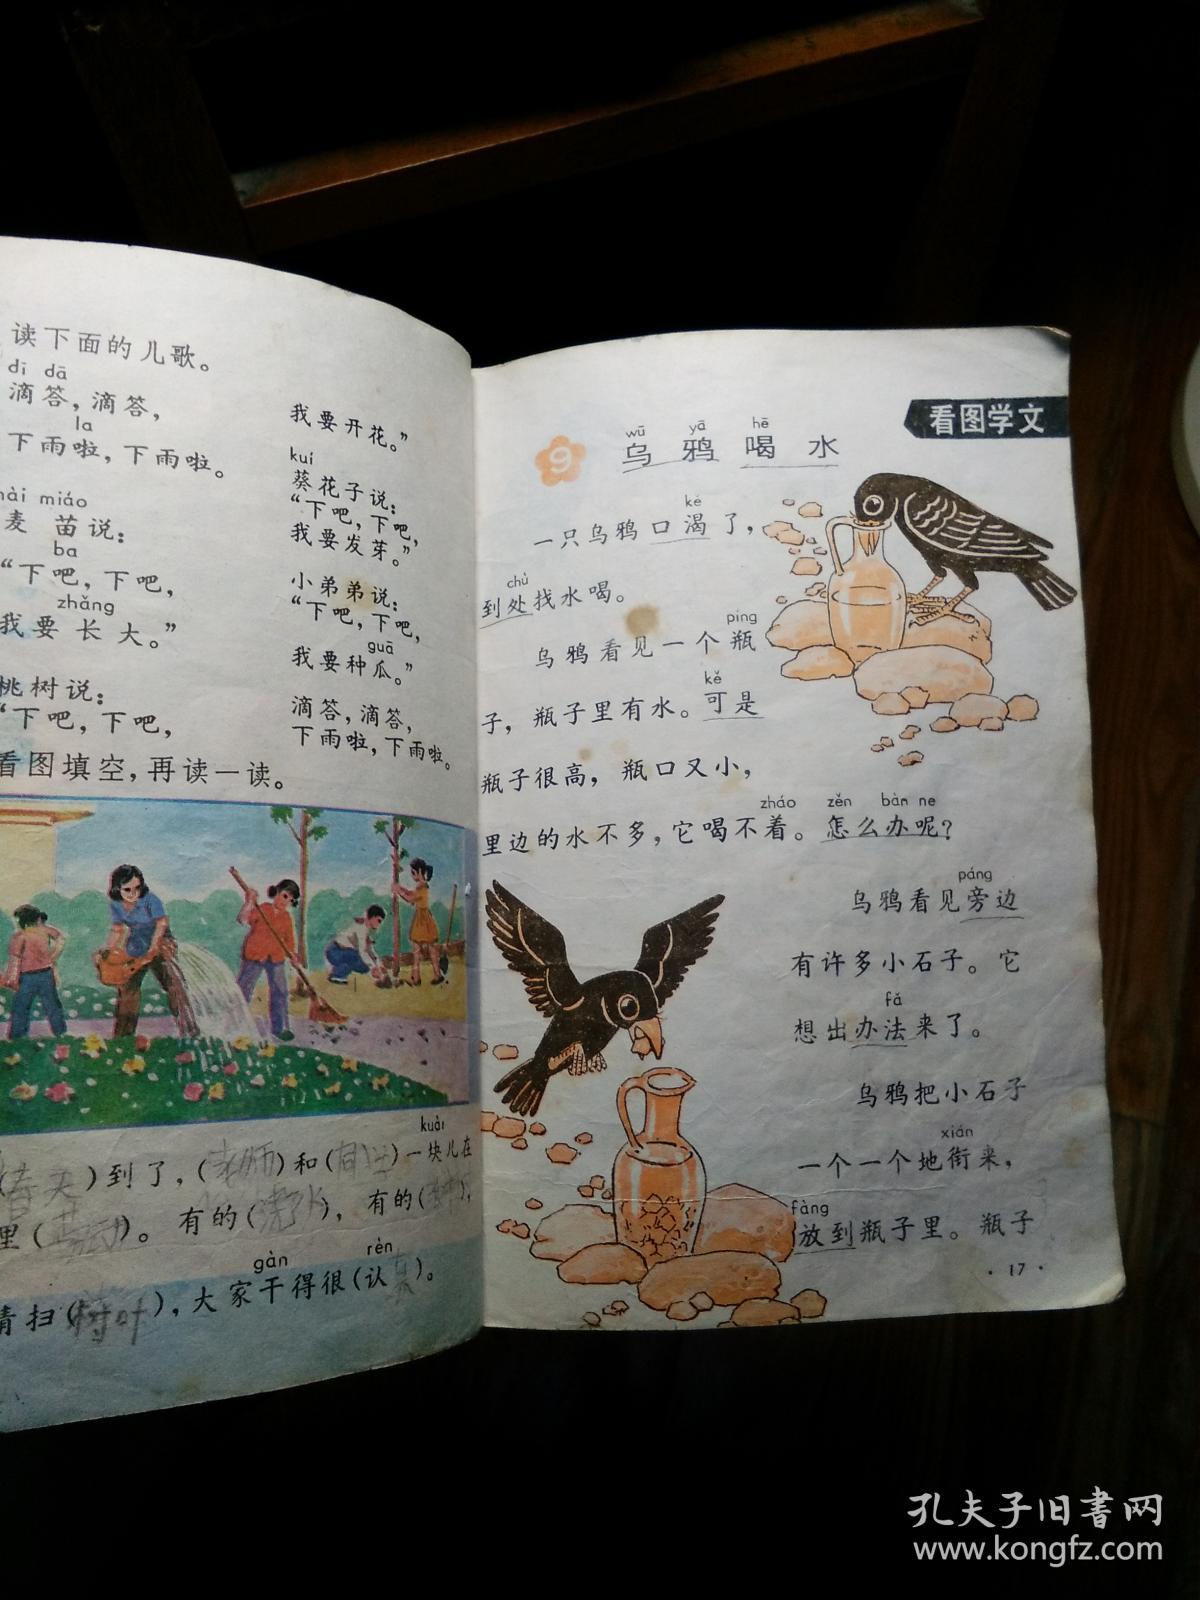 读下面的儿歌。
dī dā
滴答，滴答，
la
下雨啦，下雨啦。
miáo
麦苗说：
ba
“下吧，下吧，
zhǎng
我要长大。”
桃树说：
“下吧，下吧，
我要开花。”
kuí
葵花子说：
“下吧，下吧，
我要发芽。”
小弟弟说：
“下吧，下吧，
guā
我要种瓜。”
滴答，滴答，
下雨啦，下雨啦。
看图填空，再读一读。
kuài
(春天)到了，(老师)和(同学)一块儿在
里( )。有的(浇水)，有的( )，
gàn rèn
清扫(树叶)，大家干得很(认真)。
看图学文
wū yā hē
9 乌鸦喝水
kě
一只乌鸦口渴了，
chù
到处找水喝。
píng
乌鸦看见一个瓶
kě
子，瓶子里有水。可是
瓶子很高，瓶口又小，
zháo zěn bàn ne
里边的水不多，它喝不着。怎么办呢？
páng
乌鸦看见旁边
有许多小石子。它
fǎ
想出办法来了。
乌鸦把小石子
xián
一个一个地衔来，
fàng
放到瓶子里。瓶子
·17·
孔夫子旧書网
www.kongfz.com